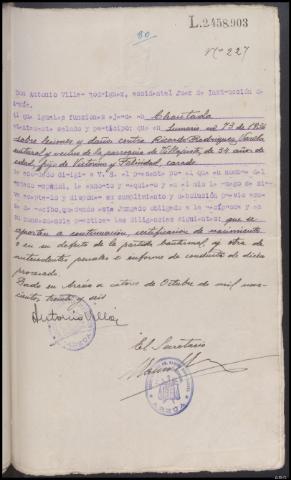 L.2458.903
80
Nº 227
Don Antonio Villar Rodríguez, accidental Juez de Instrucción de
Arzúa.
Al que iguales funciones ejerce en Chantada
atentamente saludo y participo: que en sumario nº 73 de 1936
sobre lesiones y daños contra Ricardo Rodríguez Varela
natural y vecino de la parroquia de de 34 años de
edad, hijo de Victorino y Felicidad, casado
he acordado dirigir a V.S. el presente por el que en nombre del
Estado español, le exhorto y requiero y en el mío le ruego se sirva
aceptarlo y disponer su cumplimiento y devolución previo acuse
de recibo, quedando este Juzgado obligado a la recíproca y en
su consecuencia practicar las diligencias siguientes: que se
aporten a continuación, certificación de nacimiento
o en su defecto de la partida bautismal, y otra de
antecedentes penales e informe de conducta de dicho
procesado.
Dado en Arzúa a catorce de Octubre de mil nove-
cientos treinta y seis
Antonio Villar
El Secretario
ARZUA